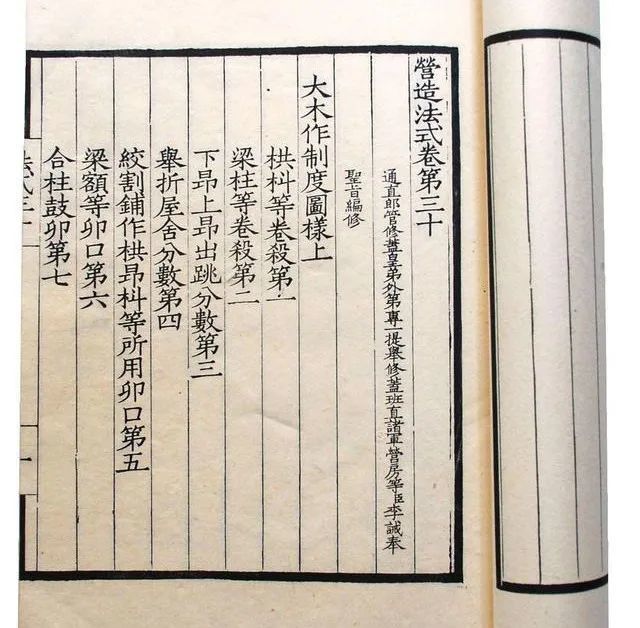 營造法式卷第三十
通直郎管修蓋皇弟外第專一提舉修蓋班直諸軍營房等臣李誡奉
聖旨編修
大木作制度圖樣上
栱枓等卷殺第一
梁柱等卷殺第二
下昂上昂出跳分數第三
舉折屋舍分數第四
絞割鋪作栱昂枓等所用卯口第五
梁額等卯口第六
合柱鼓卯第七
法式三十
一